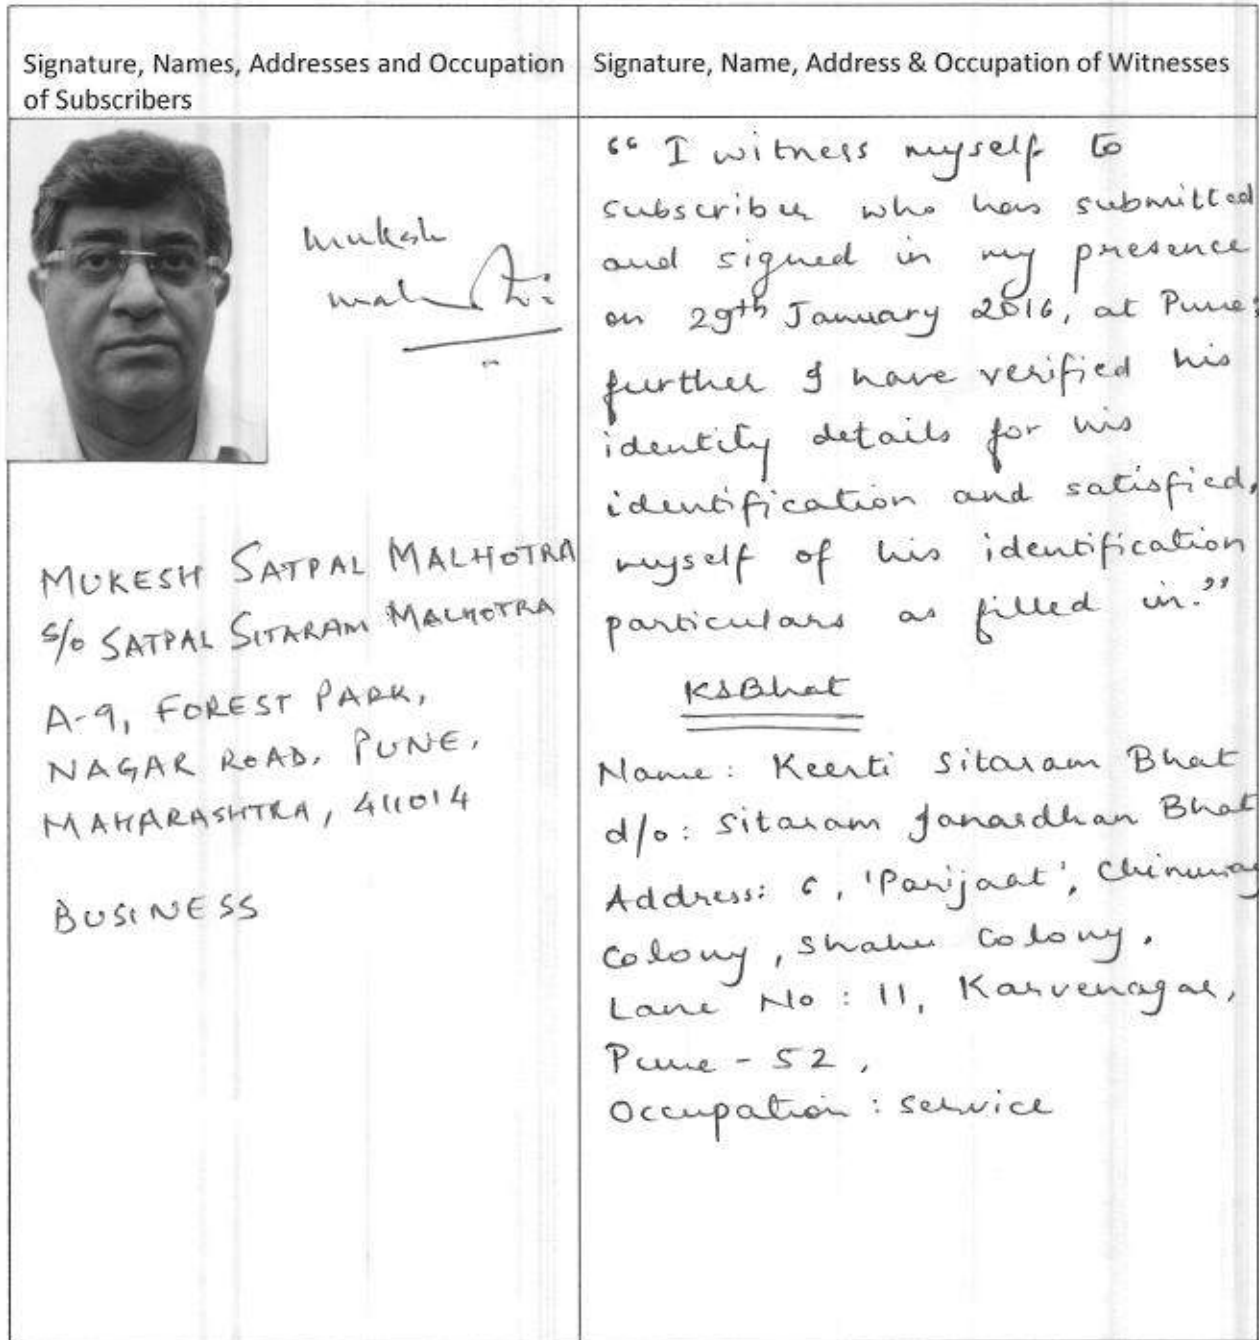 Signature, Names, Addresses and Occupation
of Subscribers
mukesh
MUKESH SATPAL MALHOTRA
S/o SATPAL SITARAM MALHOTRA
A-9, FOREST PARK,
NAGAR ROAD, PUNE,
MAHARASHTRA, 411014
BUSINESS
Signature, Name, Address & Occupation of Witnesses
“I witness myself to
subscriber who has submitted
and signed in my presence
on 29th January 2016, at Pune,
further I have verified his
identity details for his
identification and satisfied,
myself of his identification
particulars as filled in.”
KSBhat
Name: Keerti Sitaram Bhat
d/o: Sitaram Janardhan Bhat
Address: 6, 'Parijaat', Chinmay
Colony, Shahu Colony,
Lane No: 11, Karvenagar,
Pune - 52,
Occupation: service